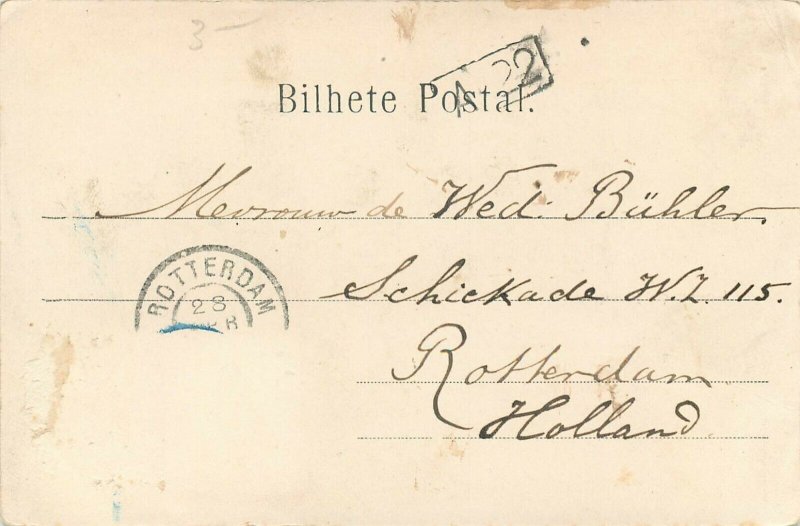 3-
22
Bilhete Postal.
Mevrouw de Wed. Bühler.
Schiekade W.Z. 115.
Rotterdam
Holland
ROTTERDAM
23